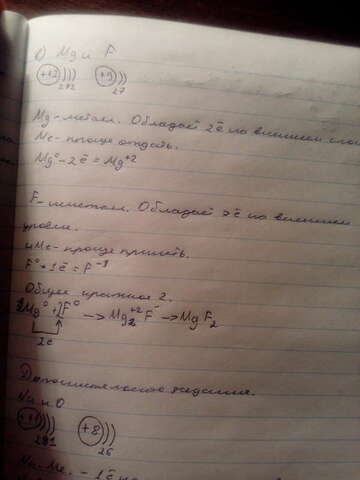 б) Mg и F
+12 )))
282
+9 ))
27
Mg - металл. Обладает 2ē на внешнем слое
Ме - проще отдать.
Mg⁰ - 2ē = Mg⁺²
F - неметалл. Обладает 7ē на внешнем
уровне.
нМе - проще принять.
F⁰ + 1ē = F⁻¹
Общее кратное 2.
Mg⁰ + 2F⁰ → Mg⁺²F⁻ → MgF₂
2ē
Дополнительное задание.
Na и O
+11 )))
281
+8 ))
26
Na - Ме. - 1ē